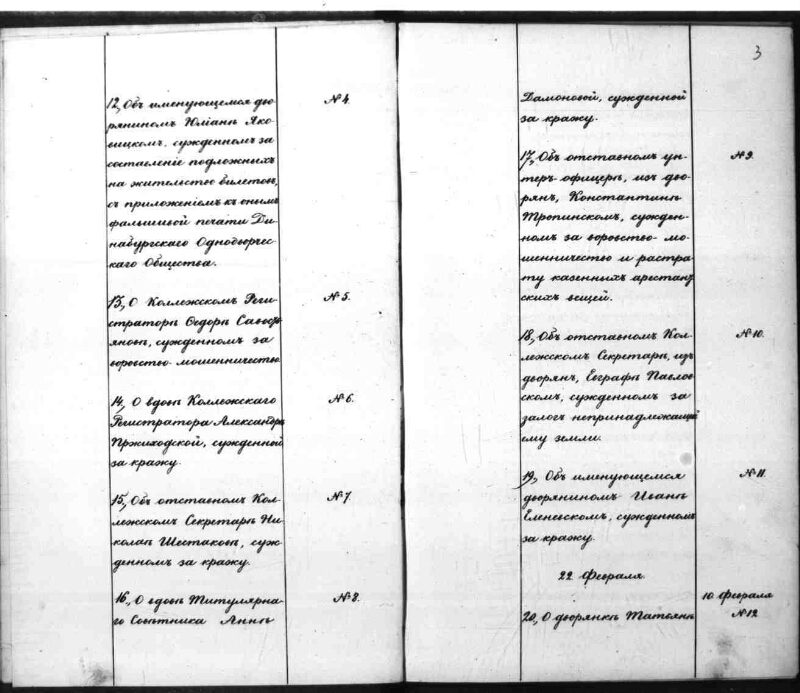 12, Объ именующемся дво- № 4.
рянином Юліанѣ Яко-
вицкомъ, сужденномъ за
составленіе подложныхъ
на жительство билетовъ,
съ приложеніемъ къ онымъ
фальшивой печати Ди-
набургскаго Однодворчес-
каго Общества.
13, О Коллежскомъ Реги- № 5.
страторѣ Ѳедорѣ Савось-
яновѣ, сужденномъ за
воровство-мошенничество
14, О вдовѣ Коллежскаго № 6.
Регистратора Александрѣ
Пржиходской, сужденной
за кражу.
15, Объ отставномъ Кол- № 7
лежскомъ Секретарѣ Ни-
колаѣ Шестаковѣ, суж-
денномъ за кражу.
16, О вдовѣ Титулярна- № 8.
го Совѣтника Аннѣ
3
Дамоновой, сужденной
за кражу.
17, Объ отставномъ ун- № 9.
теръ-офицерѣ, изъ дво-
рянъ, Константинѣ
Тропинскомъ, сужден-
номъ за воровство-мо-
шенничество и растра-
ту казенныхъ арестант-
скихъ вещей.
18, Объ отставномъ Кол- № 10.
лежскомъ Секретарѣ, изъ
дворянъ, Евграфѣ Павлов-
скомъ, сужденномъ за
залогъ непринадлежащей
ему земли.
19, Объ именующемся № 11
дворяниномъ Иванѣ
Еленевскомъ, сужденномъ
за кражу.
22 Февраля.
10 Февраля
20, О дворянкѣ Татьянѣ № 12